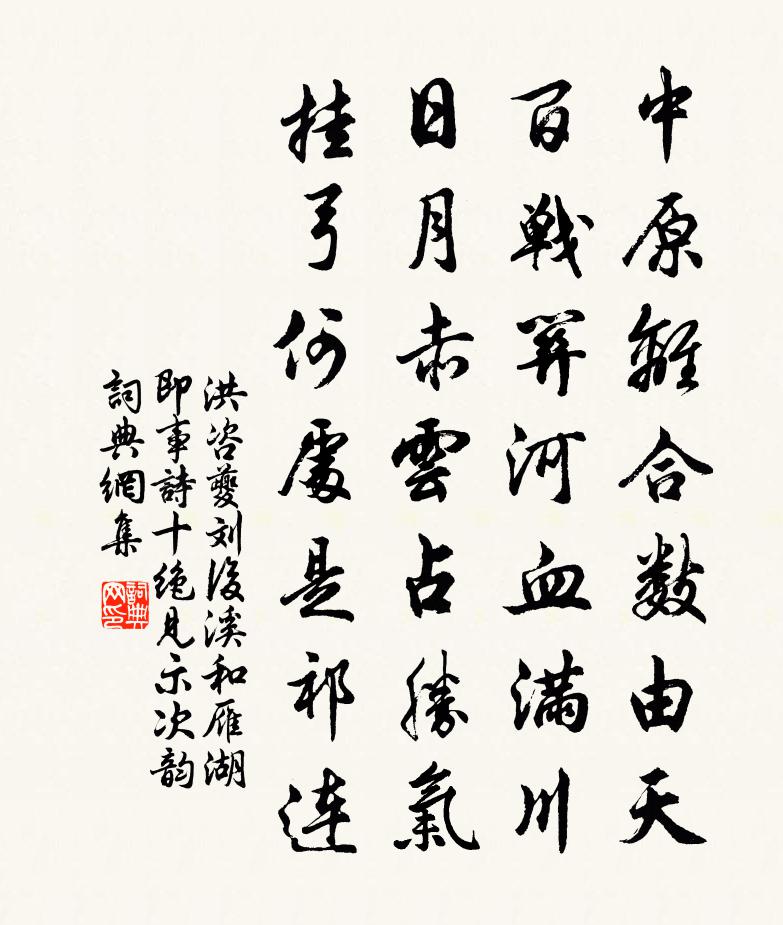 中原離合數由天
百戰關河血滿川
日月赤雲占勝氣
挂弓何處是祁連
洪咨夔刘後溪和雁湖
即事詩十絶見示次韵
詞典網集
詞典网印